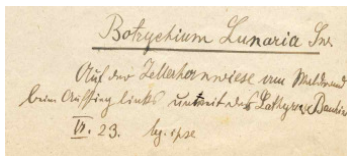 Botrychium Lunaria Sw.
Auf der Zellerhornwiese am Waldrand
beim Aufstieg links unweit des Lathyrus
VI. 23. lg. ipse